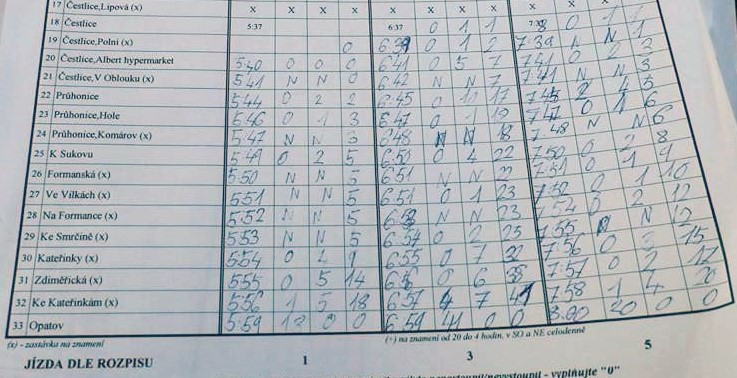 17 Čestlice,Lipová (x) x x x x x x x x x x
18 Čestlice 5:37 6:37 0 1 1 0 1
19 Čestlice,Polní (x) 0 6:39 0 1 2 7:39 N N 1
20 Čestlice,Albert hypermarket 5:40 0 0 0 6:41 0 5 7 7:41 0 2 3
21 Čestlice,V Oblouku (x) 5:41 N N 0 6:42 N N 7 7:41 N N 3
22 Průhonice 5:44 0 2 2 6:45 0 17 7:45 2 4 5
23 Průhonice,Hole 5:46 0 1 3 6:47 0 1 7:47 0 1 6
24 Průhonice,Komárov (x) 5:47 N N 3 6:48 N N 18 7:48 N N 6
25 K Sukovu 5:49 0 2 5 6:50 0 4 22 7:50 0 2 8
26 Formanská (x) 5:50 N N 5 6:51 N N 22 7:51 0 1 9
27 Ve Vilkách (x) 5:51 N N 5 6:51 0 1 23 7:52 0 1 10
28 Na Formance (x) 5:52 N N 5 N N 23 7:54 0 2 12
29 Ke Smrčině (x) 5:53 N N 5 6:54 0 2 25 7:55 N 12
30 Kateřinky (x) 5:54 0 4 9 6:55 0 7 32 7:56 0 3 15
31 Zdiměřická (x) 5:55 0 5 14 6:56 0 6 38 7:57 0 2 17
32 Ke Kateřinkám (x) 5:56 1 5 18 6:57 4 7 41 7:58 1 4 20
33 Opatov 5:59 18 0 0 6:59 41 0 0 20 0 0
(x) - zastávka na znamení (+) na znamení od 20 do 4 hodin, v SO a NE celodenně
JÍZDA DLE ROZPISU 1 3 5
nepřistoupil/nevystoupil - vyplňujte "0"